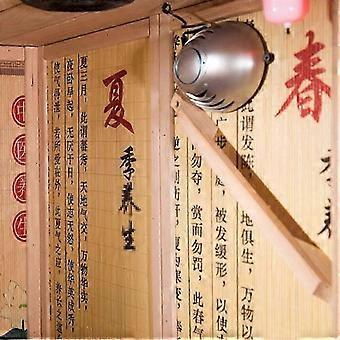 春
季养
此谓发陈，
地俱生，万物以
广步于庭，被发缓形，以使
勿夺，赏而勿罚，此春气
逆之则伤肝，夏为寒变，
夏
季养生
夏三月，此谓蕃秀，天地气交，万物华实，
夜卧早起，无厌于日，使志无怒，使华英成秀，
使气得泄，若所爱在外，此夏气之应，养长之道
中医养生